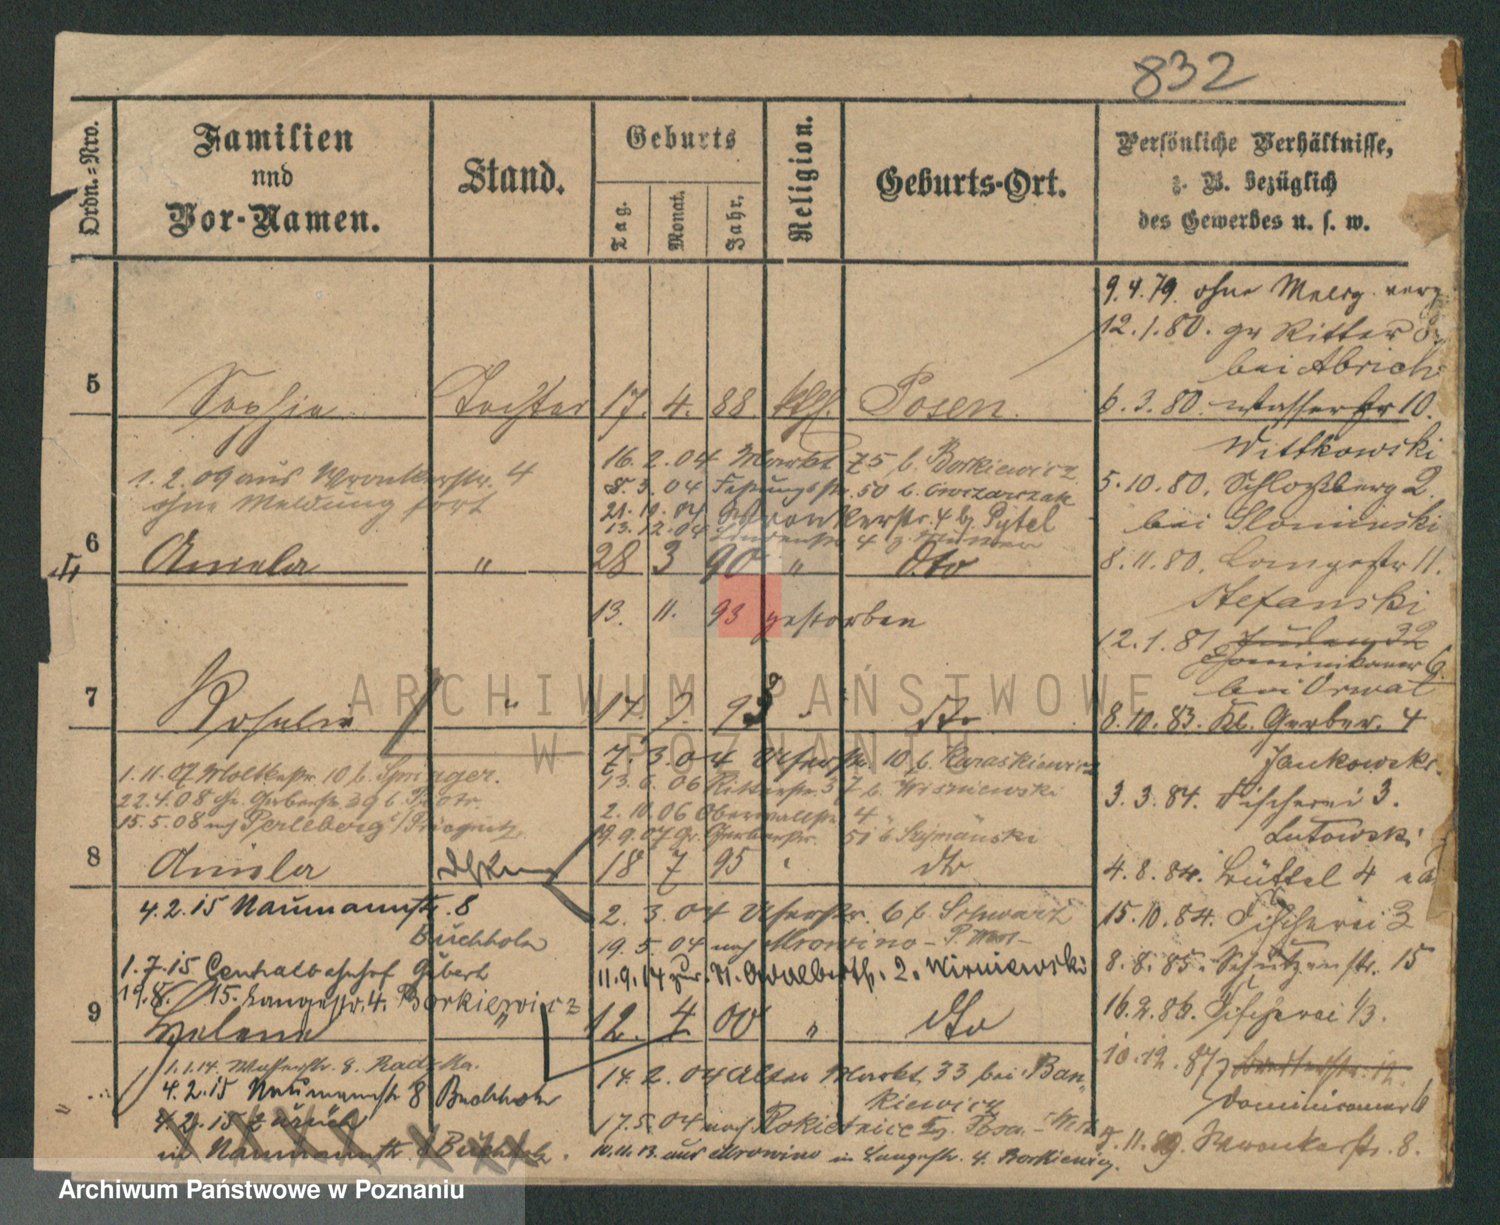 832
Ordn.-Nro.
Familien
und
Vor-Namen.
Stand.
Geburts
Tag.
Monat.
Jahr.
Religion.
Geburts-Ort.
Persönliche Verhältnisse,
z. B. bezüglich
des Gewerbes u. s. w.
9.4.79. ohne
12.1.80. gr Ritter
bei
5 Sophie Tochter 17. 4. 88 kth. Posen.
6.3.80. Wasserstr 10.
Wittkowski
1.2.09 aus Wronkerstr. 4
ohne Meldung fort
16.2.04 Markt 75 b. Borkiewicz
8.3.04 Festungsstr. 50 b.
21.11.04 Wronkerstr. 4 b. Pytel
13.12.04 4
5.10.80. Schloßberg 2.
bei Slominski
6 Aniela " 28 3 90 " dto
8.11.80. Langestr 11.
Stefanski
13. 11. 93 gestorben
12.1.81
Dominikaner 6.
bei Orwat
7 Rosalie " 14 7. 93 " dto
8.10.83. Kl. Gerber. 4
Jankowski.
1.11.07 Moltkestr. 10 b. Springer.
22.4.08 Gr. Gerberstr 39 b. Piotr.
15.5.08 nach Perleberg / Prignitz
7.3.04 Uferstr. 10 b. Karaskiewicz
13.6.06 Ritterstr. 37 b. Wisniewski
2.10.06 Oberwallstr 4
19.9.07 Gr. Gerberstr. 51 b. Szymański
3.3.84. Fischerei 3.
Lutowski
8 Aniela 18 7 95 " dto
4.8.84. Büttel 4
4.2.15 Naumannstr. 8
Buchholz
2.3.04 Uferstr. 6 b. Schwarz
19.5.04 nach Mrowino
15.10.84. Fischerei 3
1.7.15 Centralbahnhof Gibert
11.9.14 zur. St. Adalberth. 2. Wisniewski
8.8.85. Schützenstr. 15
19.8. 15. Langestr. 4. Borkiewicz
9 Helene " 12. 4 00 " dto
16.2.86. Fischerei 1/3.
1.1.14. Wasserstr. 8.
4.2.15 Naumannstr 8 Buchholz
4.2.15 zurück
in Naumannstr. 8 Buchholz.
14.2.04 Alter Markt 33 bei Ban-
kiewicz
17.5.04 nach Rokietnice
10.11.13. aus Mrowino in Langestr. 4. Borkiewicz.
10.12.87
Dominicaner 6
5.11.89. Wronkerstr. 8.
ARCHIWUM PAŃSTWOWE
W POZNANIU
Archiwum Państwowe w Poznaniu